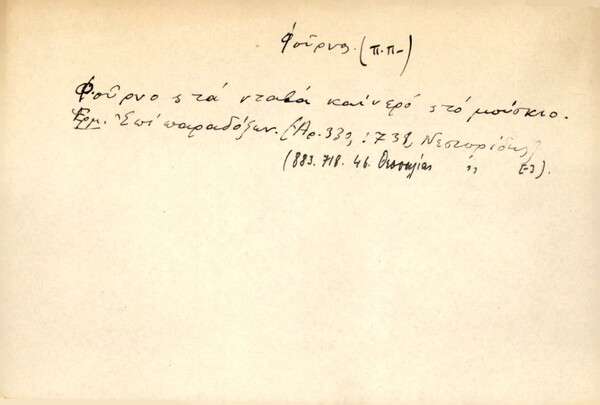 Φοῦρνος (π.π-)
Φοῦρνο στά νταβά καί νερό στό μούσκιο.
Ἑρμ. Ἐπί παραδόξων. (Ἀρ. 339, 738, Νεστορίδης)
(883. 718. 46. Θεσσαλίας ,, [-]).